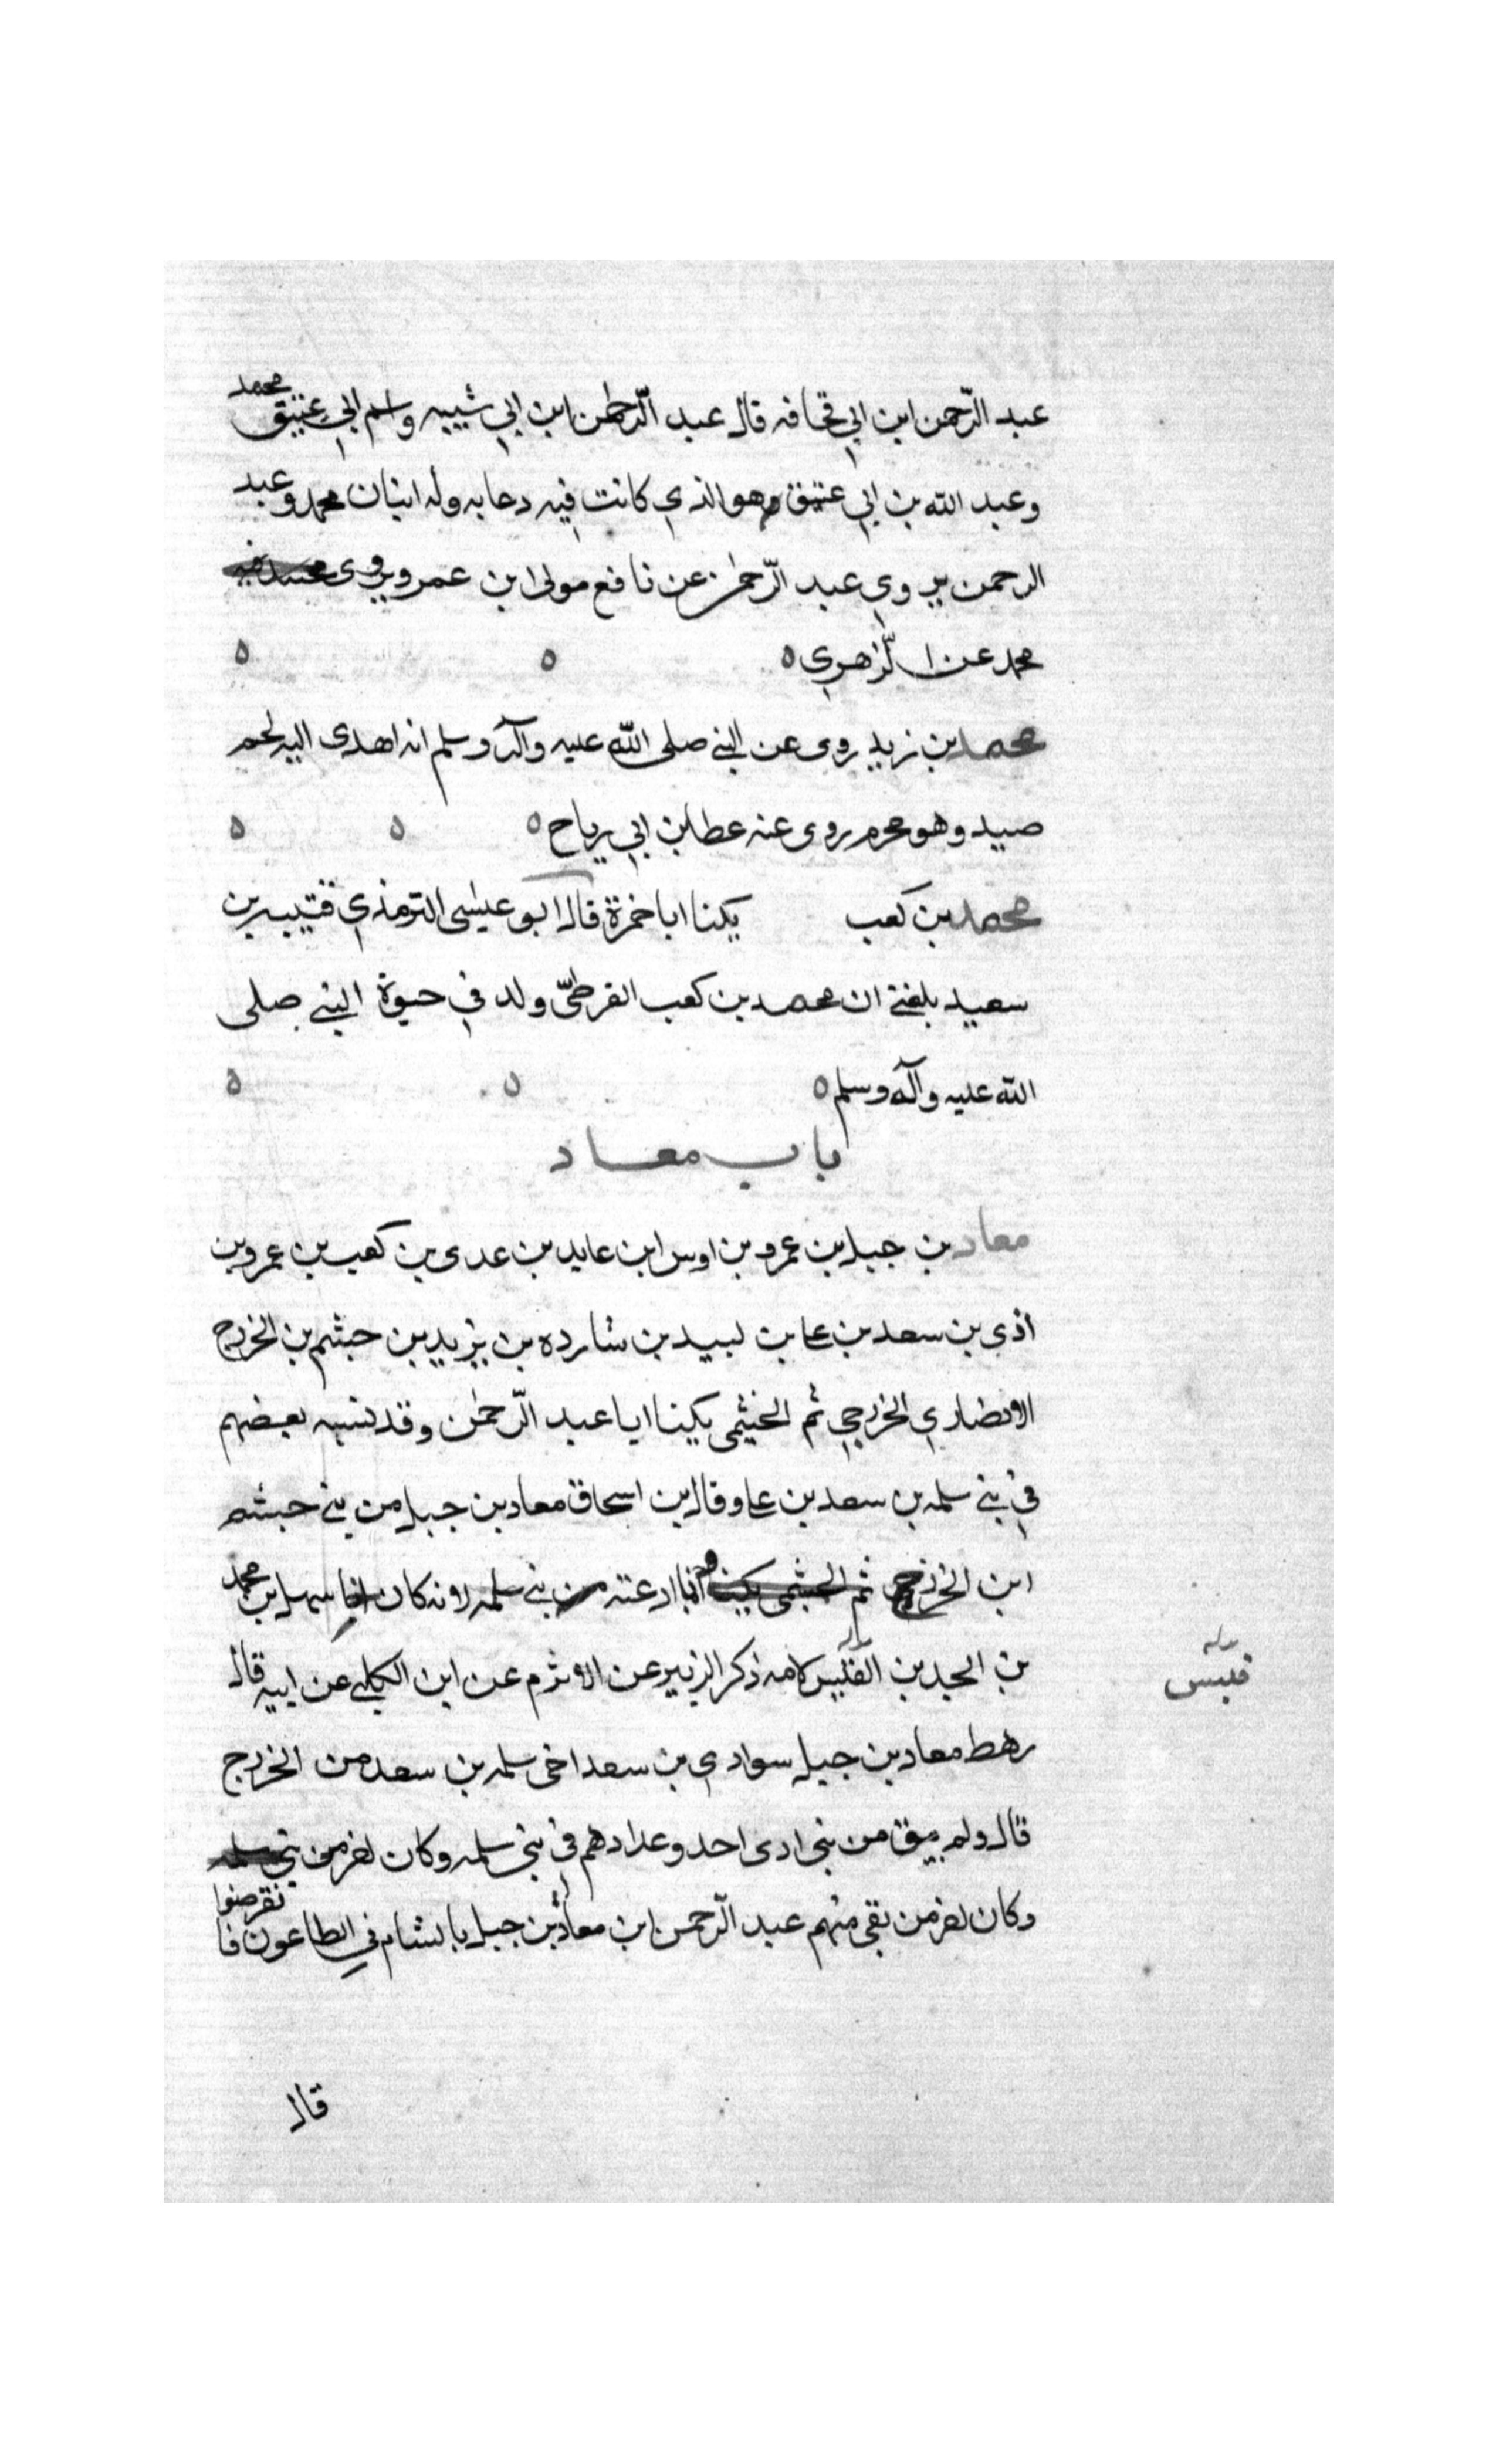 عبد الرّحمن ابن ابي قحافه قال عبد الرّحمن ابن ابي شيبه واسم ابي عتيق محمد
وعبد الله بن ابي عتيق وهو الذي كانت فيه دعابه وله ابنان محمد وعبد
الرحمن يروي عبد الرّحمن عن نافع مولى ابن عمر ويروى
محمد عن الزّهري ه ه ه
محمد بن زيد روى عن النبي صلى الله عليه وآله وسلم انه اهدى اليه لحم
صيد وهو محرم روى عنه عطا بن ابي رباح ه ه ه
محمد بن كعب يكنا ابا حمزة قال ابو عيسى الترمذي قتيبه بن
سعيد بلغني ان محمد بن كعب القرظيّ ولد في حيوة النبي صلى
الله عليه وآله وسلم ه ه ه
باب معاد
معاد بن جبل بن عمرو بن اوس ابن عايد بن عدى بن كعب بن عمرو بن
اذى بن سعد بن على بن لبيد بن شارده بن يزيد بن حبثم بن الخزرج
الانصاري الخزرجي ثم الخيثمى يكينا ابا عبد الرّحمن وقد نسبه بعضهم
في بني سلمه بن سعد بن على وقال بن اسحاق معاد بن جبل من بني حبشم
ابن الخزرج وانما ادعته بني سلمه لانه كان اخا سهل بن محمد
بن الجد بن القليس لامه ذكر الزبير عن الاثرم عن ابن الكلبي عن ابيه قال
قيس
رهط معاد بن جبل بنوادي بن سعد اخى سلمه بن سعد من الخزرج
قال ولم يبق من بنى ادى احد وعدادهم في بنى سلمه وكان اخر من بني سلمه
وكان اخر من بقى منهم عبد الرّحمن ابن معاذ بن جبل بالشام في الطاعون فانقرضوا
قال